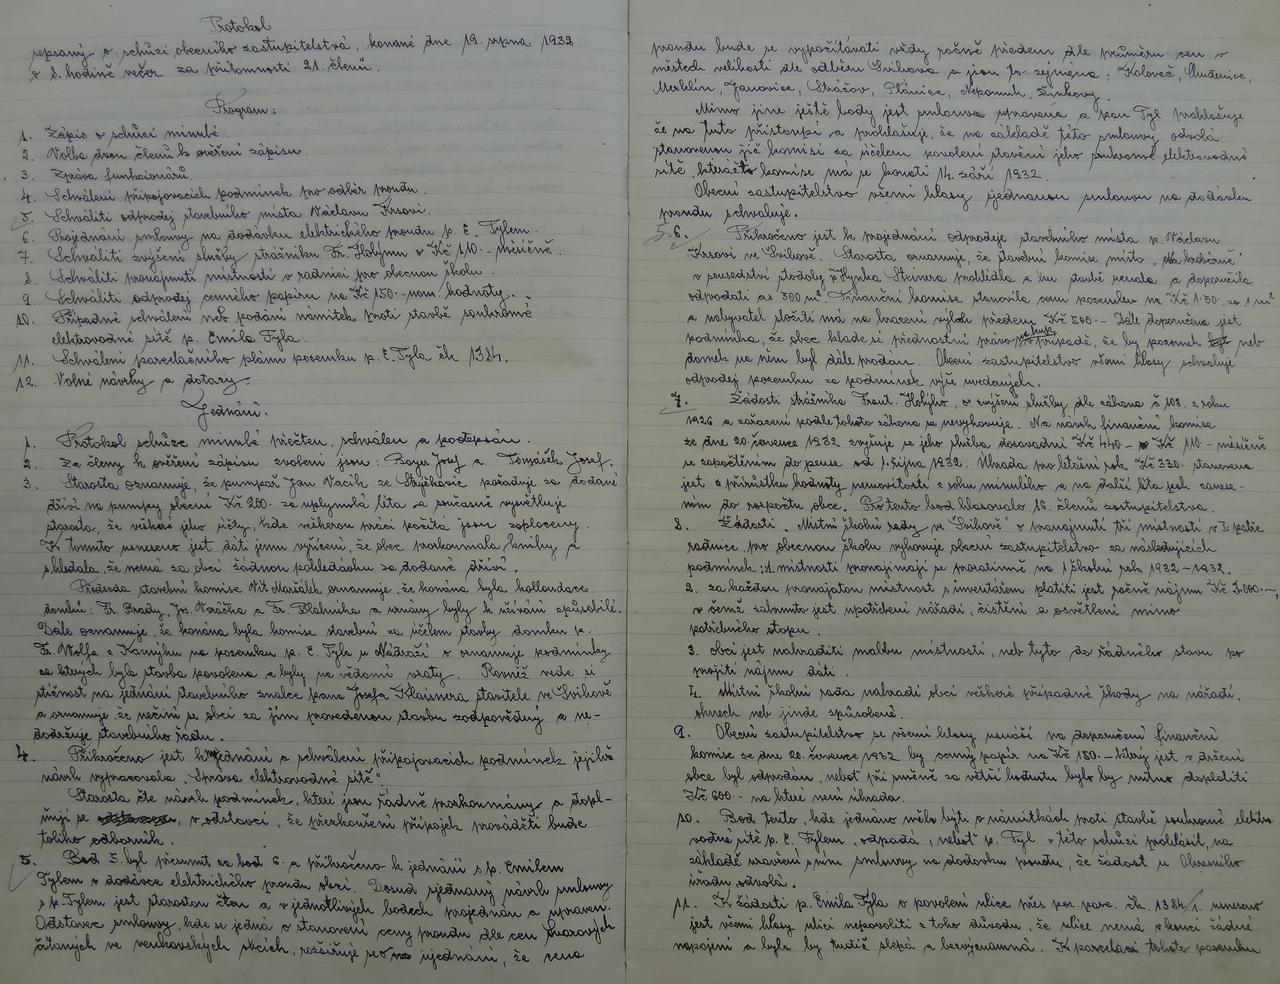 Protokol
sepsaný o schůzi obecního zastupitelstva, konané dne 19. srpna 1932
v 8. hodině večer za přítomnosti 21. členů.
Program:
1. Zápis o schůzi minulé.
2. Volba dvou členů k ověření zápisu.
3. Zpráva funkcionářů.
4. Schválení připojovacích podmínek pro odběr proudu.
5. Schváliti odprodej stavebního místa Václavu Krsovi.
6. Projednání smlouvy na dodávku elektrického proudu p. E. Tylem.
7. Schváliti zvýšení služby strážníku Fr. Holýmu o Kč 110.- měsíčně.
8. Schváliti pronajmutí místností v radnici pro obecnou školu.
9. Schváliti odprodej cenného papíru na Kč 150.- nom. hodnoty.
10. Případné schválení neb podání námitek proti stavbě soukromé
elektrovodné sítě p. Emila Tyla.
11. Schválení parcelačního plánu pozemku p. E. Tyla čk 1384.
12. Volné návrhy a dotazy.
Jednání:
1. Protokol schůze minulé přečten, schválen a podepsán.
2. Za členy k ověření zápisu zvoleni jsou: Bayer Josef a Tomášek Josef.
3. Starosta oznamuje, že pumpař Jan Vacík ze požaduje za dodané
dříví na pumpy obecní Kč 200.- za uplynulá léta a současně vysvětluje
starosta, že veškeré jeho účty, kde veškerou práci počítá jsou zaplaceny.
K tomuto usneseno jest dáti jemu vyřízení, že obec prozkoumala knihy a
shledala, že nemá za obcí žádnou pohledávku za dodané dříví.
Předseda stavební komise Vít Maršálek oznamuje, že konána byla kollaudace
domků: Fr. Brady, Jos. Vráčka a Fr. Blatníka a uznány byly k užívání způsobilé.
Dále oznamuje, že konána byla komise stavební za účelem stavby domku p.
Fr. Wolfa z Kamýku na pozemku p. E. Tyla u Nádraží a oznamuje podmínky
za kterých byla stavba povolena a byly na vědomí vzaty. Rovněž vede si
stížnost na jednání stavebního znalce pana Josefa Klaisnera stavitele ve Švihově
a oznamuje, že nečiní se obci za jím provedenou stavbu zodpovědný a ne-
dodržuje stavebního řádu.
4. Přikročeno jest k projednání a schválení připojovacích podmínek jejichž
návrh vypracovala „Správa elektrovodné sítě".
Starosta čte návrh podmínek, které jsou řádně prozkoumány a dopl-
ňují se v odstavci, že přezkoušení přípojek prováděti bude
toliko odborník.
5. Bod 5. byl přesunut za bod 6. a přikročeno k jednání s p. Emilem
Tylem o dodávce elektrického proudu obci. Dosud sjednaný návrh smlouvy
s p. Tylem jest starostou čten a v jednotlivých bodech projednán a upraven.
Odstavec smlouvy, kde se jedná o stanovení ceny proudu dle cen
čítaných ve venkovských obcích, rozšiřuje se ujednání, že cena
proudu bude se vypočítávati vždy ročně předem dle průměru cen v
městech velikosti dle odběru Švihova a jsou to zejména: Koloveč, Chudenice,
Merklín, Janovice, Strážov, Plánice, Nepomuk, Žinkovy.
Mimo jiné ještě body jest smlouva upravena a pan Tyl prohlašuje
že na tuto přistoupí a prohlašuje, že na základě této smlouvy, odvolá
stanovenou již komisi za účelem povolení stavění jeho soukromé elektrovodné
sítě, kteráž komise má se konati 14. září 1932.
Obecní zastupitelstvo všemi hlasy sjednanou smlouvu na dodávku
proudu schvaluje.
5. 6. Přikročeno jest k projednání odprodeje stavebního místa p. Václavu
Krsovi ve Švihově. Starosta oznamuje, že stavební komise místo
v sousedství stodoly p. Hynka Steinera prohlédla a ku stavbě uznala a doporučila
odprodati as 500 m². Finanční komise stanovila cenu pozemku na Kč 1.50. za 1 m²
a nabyvatel složiti má na hrazení výloh předem Kč 500.- Dále doporučena jest
podmínka, že obec klade si přednostní právo na koup v případě, že by pozemek neb
domek na něm byl dále prodán. Obecní zastupitelstvo všemi hlasy schvaluje
odprodej pozemku za podmínek výše uvedených.
7. Žádosti strážníka Frant. Holýho, o zvýšení služby dle zákona č 103. z roku
1926 a zařazení podle tohoto zákona se nevyhovuje. Na návrh finanční komise
ze dne 20. července 1932 zvyšuje se jeho služba dosavadní Kč 440.- o Kč 110.- měsíčně
se započtením do pense od 1. října 1932. Úhrada pro letošní rok Kč 330. stanovena
jest z přírůstku hodnoty nemovitostí z roku minulého a na další léta pak zanese-
ním do rozpočtu obce. Pro tento bod hlasovalo 16. členů zastupitelstva.
8. Žádosti „Místní školní rady ve Švihově" o pronajmutí tří místností v I patře
radnice pro obecnou školu vyhovuje obecní zastupitelstvo za následujících
podmínek: 1. místnosti pronajímají se prozatímně na 1 školní rok 1932 – 1932.
2. za každou pronajatou místnost s inventářem platiti jest ročně nájmu Kč 3.000.-,
v čemž zahrnuto jest upotřebení nářadí, čistění a osvětlení mimo
potřebného otopu.
3. obci jest nahraditi malbu místností, neb tyto do řádného stavu po
projití nájmu dáti.
4. Místní školní rada nahradí obci veškeré případné škody na nářadí,
oknech neb jinde způsobené.
9. Obecní zastupitelstvo se všemi hlasy usnáší na doporučení finanční
komise ze dne 20. července 1932 by cenný papír na Kč 150.- který jest v držení
obce byl odprodán, neboť při směně za větší hodnotu bylo by nutno doplatiti
Kč 600.- na které není úhrada.
10. Bod tento, kde jednáno mělo býti o námitkách proti stavbě soukromé elektro-
vodné sítě p. E. Tylem, odpadá, neboť p. Tyl v této schůzi prohlásil, na
základě uzavření s ním smlouvy na dodávku proudu, že žádost u Okresního
úřadu odvolá.
11. K žádosti p. Emila Tyla o povolení ulice přes poz. parc. čk. 1384/1. usneseno
jest všemi hlasy ulici nepovoliti z toho důvodu, že ulice nemá v konci žádné
napojení a byla by tudíž slepá a bezvýznamná. K parcelaci tohoto pozemku